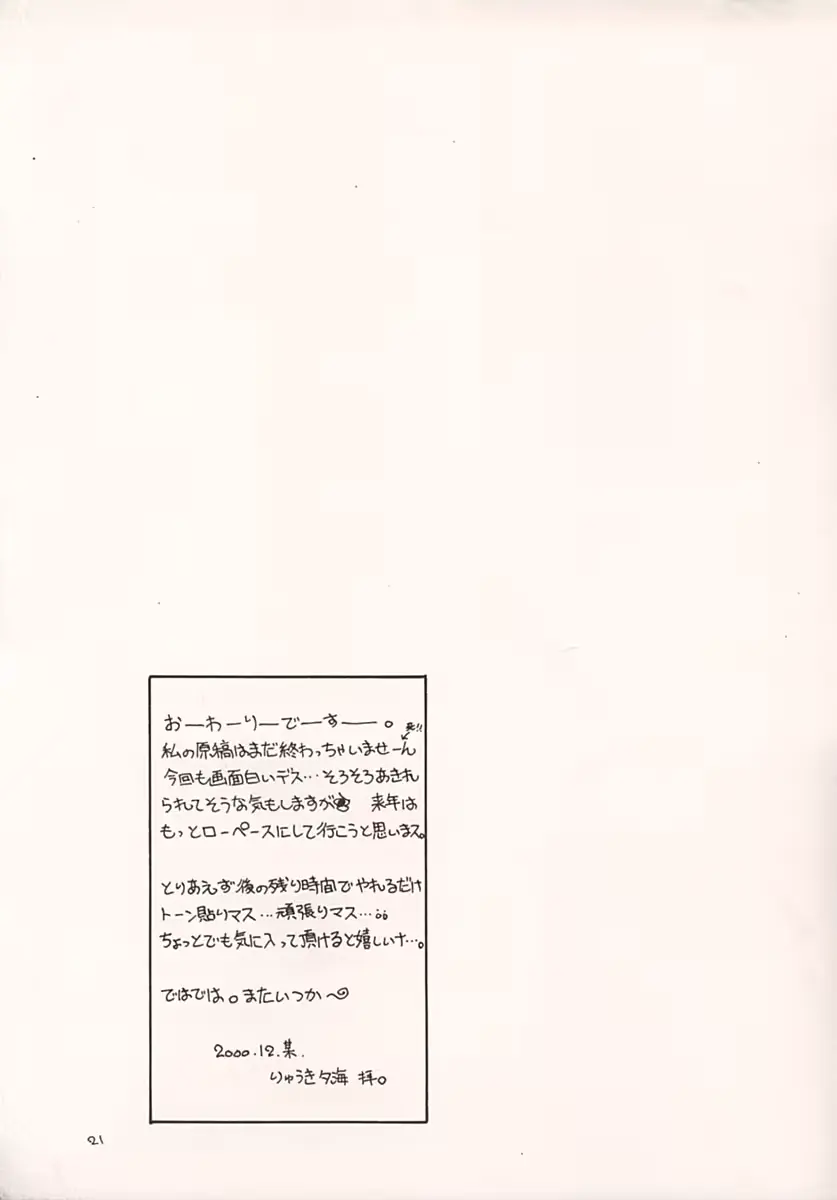 おーわーりーでーすー。
死!!
私の原稿はまだ終わっちゃいませーん
今回も画面白いデス…そろそろあきれ
られてそうな気もしますが 来年は
もっとローペースにして行こうと思いまス。
とりあえず後の残り時間でやれるだけ
トーン貼りマス…頑張りマス…
ちょっとでも気に入って頂けると嬉しいナ…。
ではでは。またいつか〜
2000.12.集.
りゅうき夕海 拝。
21